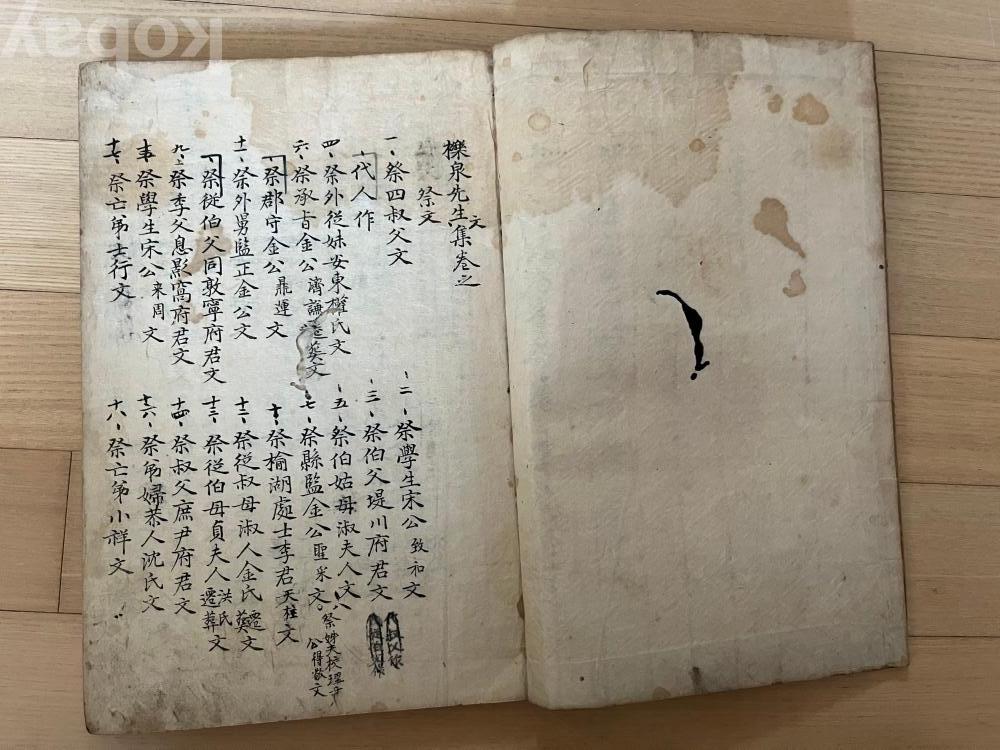 kobay
櫟泉先生文集卷之
祭文
一、祭四叔父文
二、祭學生宋公致和文
代人作
三、祭伯父堤川府君文
四、祭外從妹安東權氏文
五、祭伯姑母淑夫人文
六、祭承旨金公濟謙遷葬文
七、祭縣監金公聖采文
八、祭姊夫校理尹公得敬文
祭郡守金公鼎運文
十、祭楡湖處士李君天柱文
十一、祭外舅監正金公文
十二、祭從叔母淑人金氏遷葬文
祭從伯父同敦寧府君文
十三、祭從伯母貞夫人洪氏遷葬文
九、祭季父息影窩府君文
十四、祭叔父庶尹府君文
十五、祭學生宋公来周文
十六、祭弟婦恭人沈氏文
十七、祭亡弟士行文
十八、祭亡弟小祥文